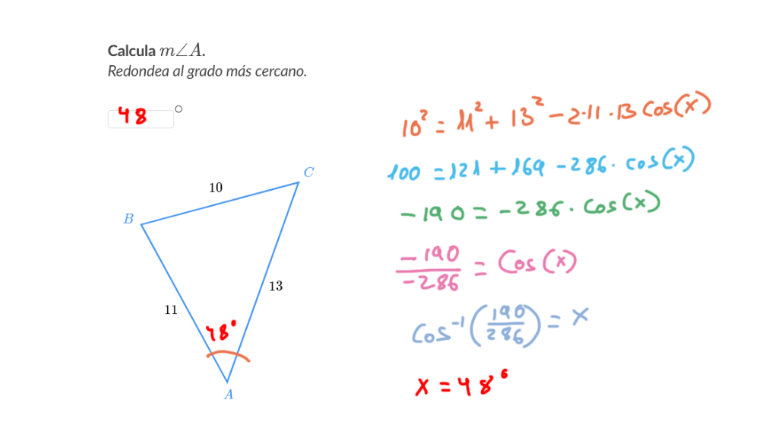 Calcula m∠A.
Redondea al grado más cercano.
48 °
C
10
B
13
11
48°
A
10² = 11² + 13² - 2·11·13 Cos(x)
100 = 121 + 169 - 286 · cos(x)
-190 = -286 · Cos(x)
-190/-286 = Cos(x)
Cos⁻¹(190/286) = x
x = 48°